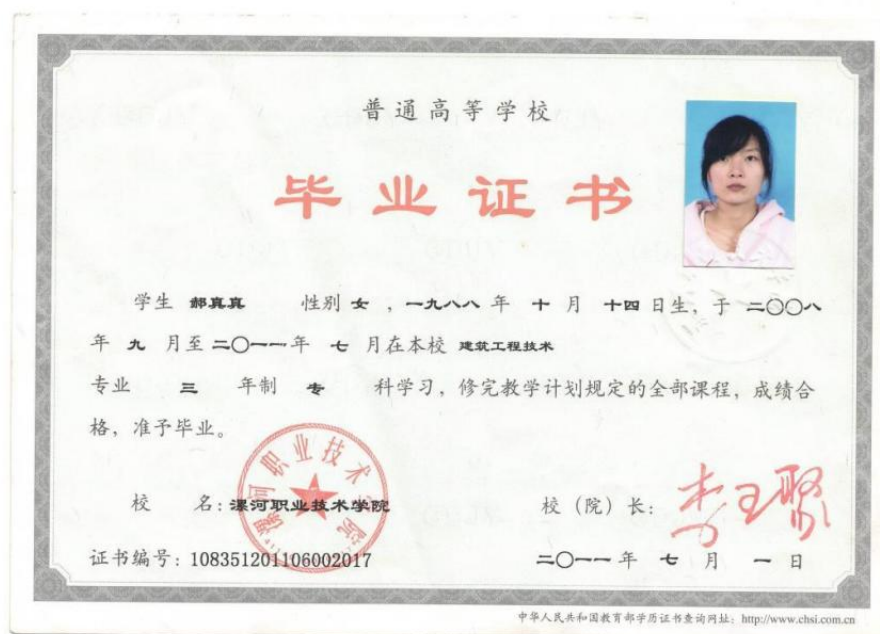 普通高等学校
毕业证书
学生 郝真真 性别 女 ，一九八八 年 十 月 十四 日生，于 二〇〇八
年 九 月至 二〇一一 年 七 月在本校 建筑工程技术
专业 三 年制 专 科学习，修完教学计划规定的全部课程，成绩合
格，准予毕业。
漯河职业技术学院
校 名：漯河职业技术学院 校（院）长：
证书编号：108351201106002017 二〇一一 年 七 月 一 日
中华人民共和国教育部学历证书查询网址：http://www.chsi.com.cn